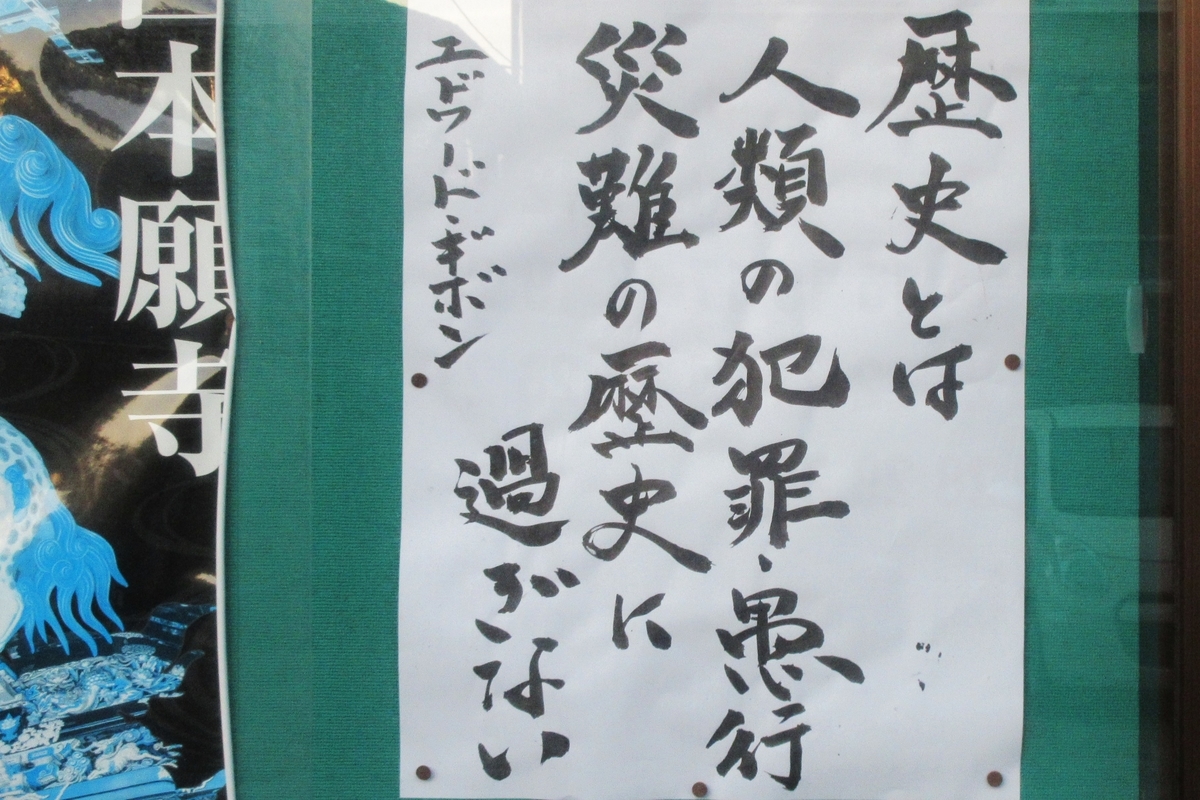 歴史とは
人類の犯罪、愚行
災難の歴史に
過ぎない
エドワード・ギボン
本願寺